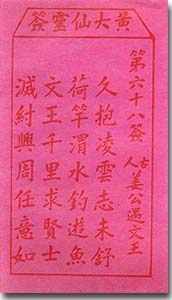 黃大仙靈簽
第六十八簽 古人 姜公遇文王
久抱凌雲志未舒
荷竿渭水釣遊魚
文王千里求賢士
滅紂興周任意如